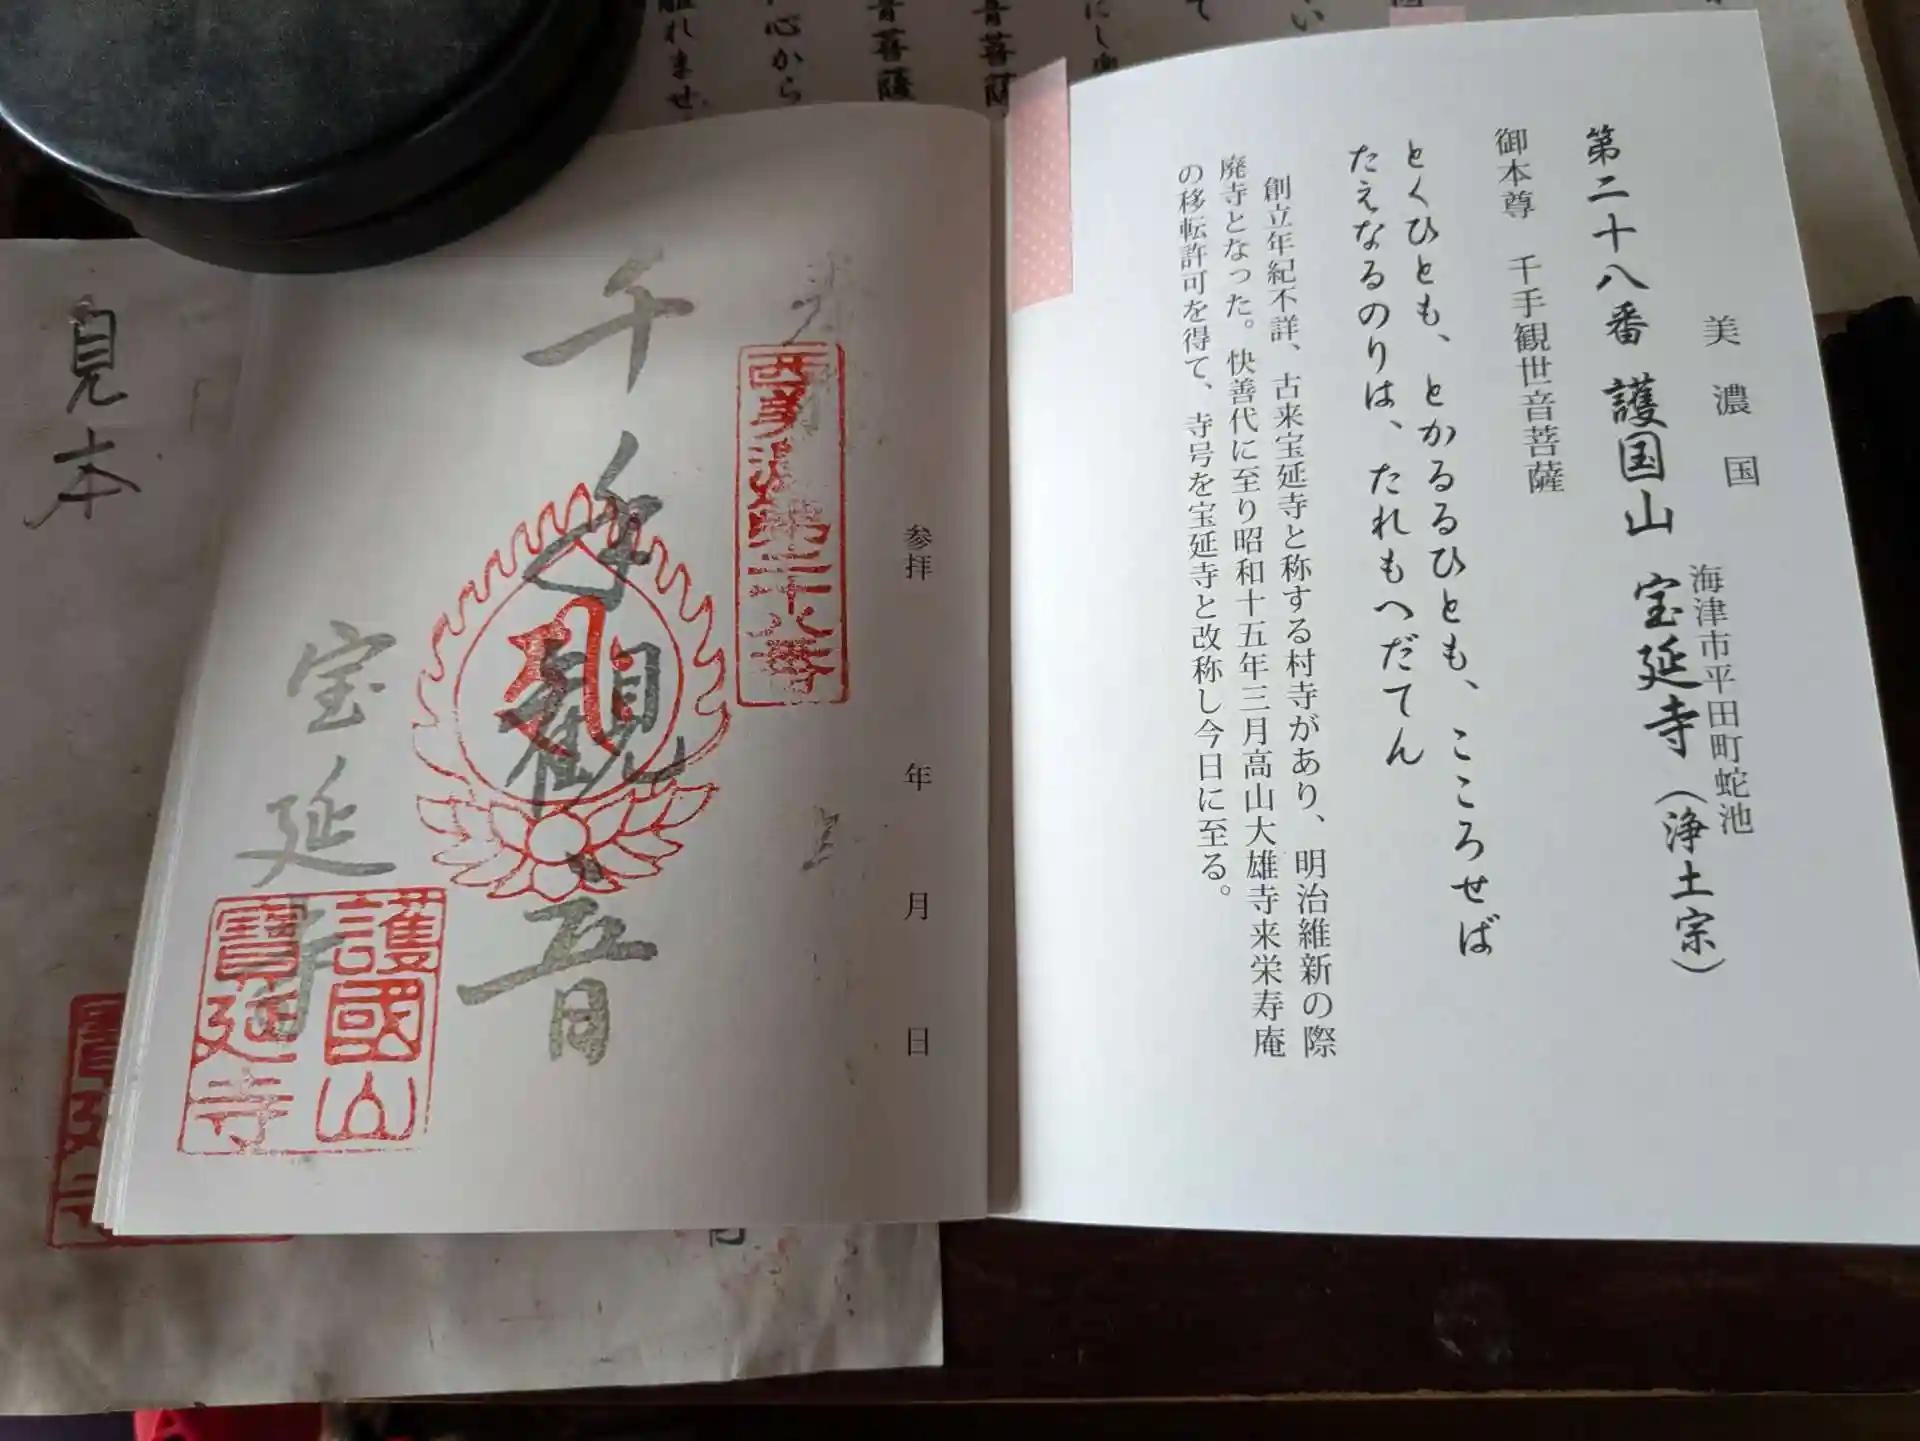 美濃国
海津市平田町蛇池
第二十八番 護国山 宝延寺（浄土宗）
御本尊 千手観世音菩薩
とくひとも、とかるるひとも、こころせば
たえなるのりは、たれもへだてん
創立年紀不詳、古来宝延寺と称する村寺があり、明治維新の際
廃寺となった。快善代に至り昭和十五年三月高山大雄寺来栄寿庵
の移転許可を得て、寺号を宝延寺と改称し今日に至る。
参拝 年 月 日
西美濃第二十八番
千手観音
宝延寺
護國山
寶延寺
見本
音菩薩
音菩薩
心から
離れませ